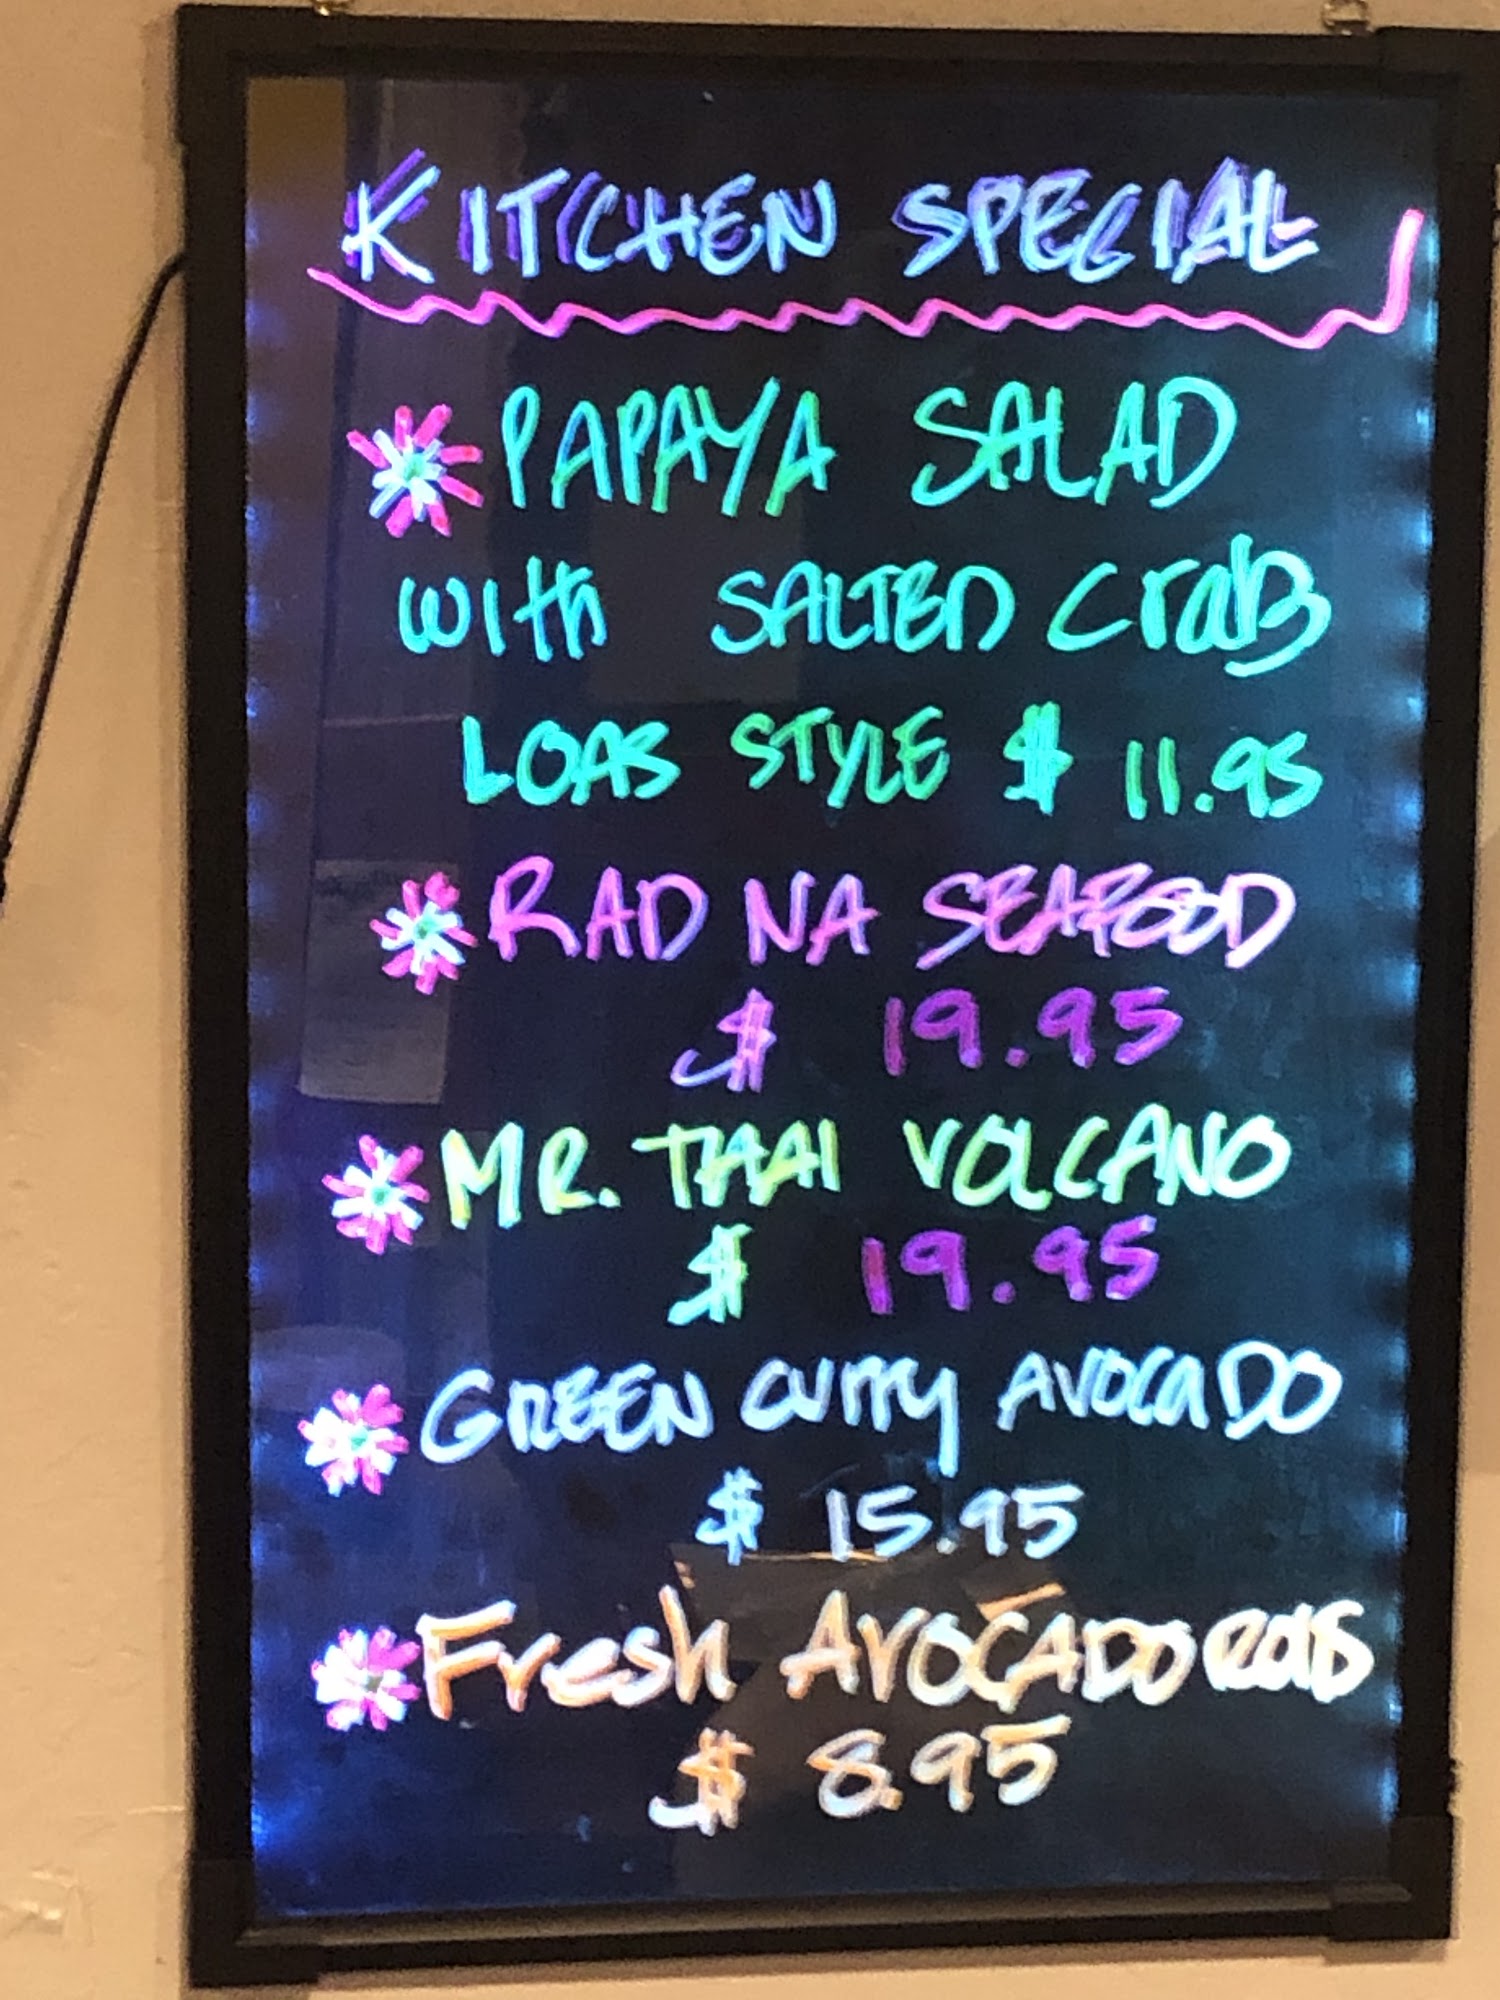 KITCHEN SPECIAL
PAPAYA SALAD
with SALTED Crab
LOAS STYLE $ 11.95
RAD NA SEAFOOD
$ 19.95
MR. THAI VOLCANO
$ 19.95
GREEN CURRY AVOCADO
$ 15.95
Fresh AVOCADO
$ 8.95